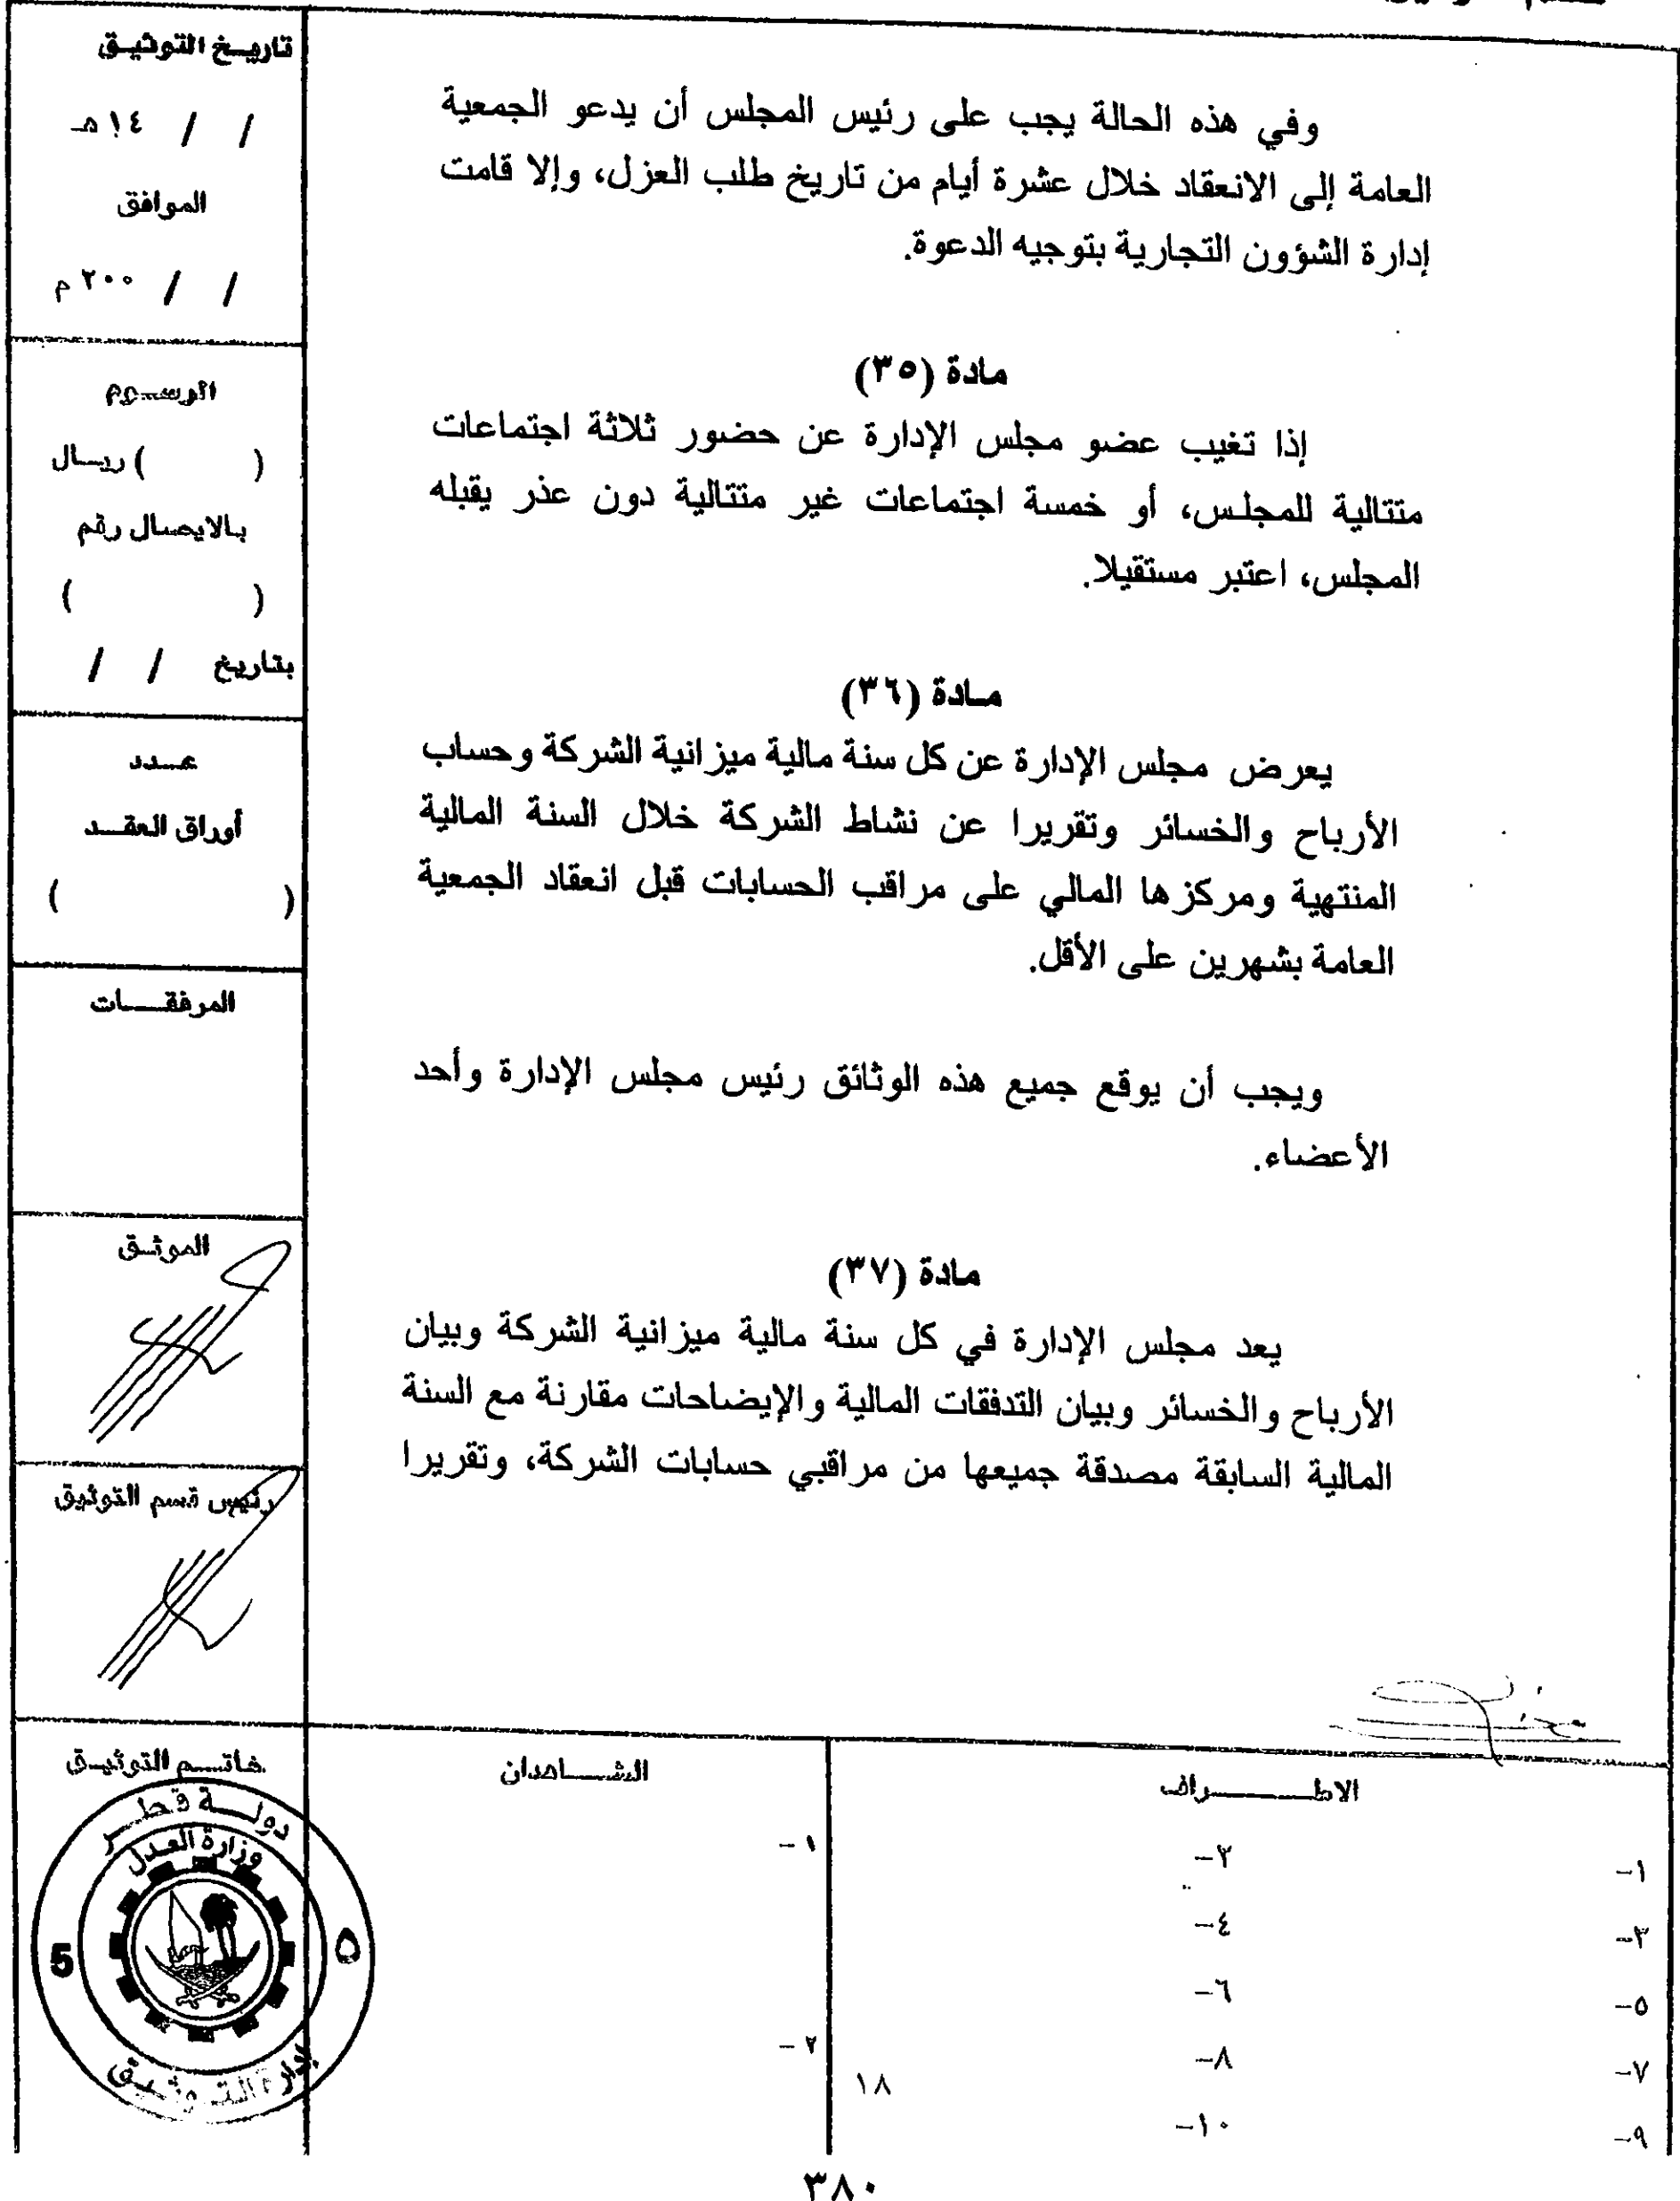 وفي هذه الحالة يجب على رئيس المجلس أن يدعو الجمعية
العامة إلى الانعقاد خلال عشرة أيام من تاريخ طلب العزل، وإلا قامت
إدارة الشؤون التجارية بتوجيه الدعوة.
مادة (٣٥)
إذا تغيب عضو مجلس الإدارة عن حضور ثلاثة اجتماعات
متتالية للمجلس، أو خمسة اجتماعات غير متتالية دون عذر يقبله
المجلس، اعتبر مستقيلا.
مادة (٣٦)
يعرض مجلس الإدارة عن كل سنة مالية ميزانية الشركة وحساب
الأرباح والخسائر وتقريرا عن نشاط الشركة خلال السنة المالية
المنتهية ومركزها المالي على مراقب الحسابات قبل انعقاد الجمعية
العامة بشهرين على الأقل.
ويجب أن يوقع جميع هذه الوثائق رئيس مجلس الإدارة وأحد
الأعضاء.
مادة (٣٧)
يعد مجلس الإدارة في كل سنة مالية ميزانية الشركة وبيان
الأرباح والخسائر وبيان التدفقات المالية والإيضاحات مقارنة مع السنة
المالية السابقة مصدقة جميعها من مراقبي حسابات الشركة، وتقريرا
تاريخ التوثيق
/ / ١٤هـ
الموافق
/ / ٢٠٠ م
الرسوم
( ) ريال
بالايصال رقم
( )
بتاريخ / /
عدد
أوراق العقد
( )
المرفقات
الموثق
رئيس قسم التوثيق
الاطراف
١-
٢-
٣-
٤-
٥-
٦-
٧-
٨-
٩-
١٠-
الشاهدان
١-
٢-
١٨
خاتم التوثيق
دولة قطر
وزارة العدل
5 ٥
إدارة التوثيق
٣٨٠